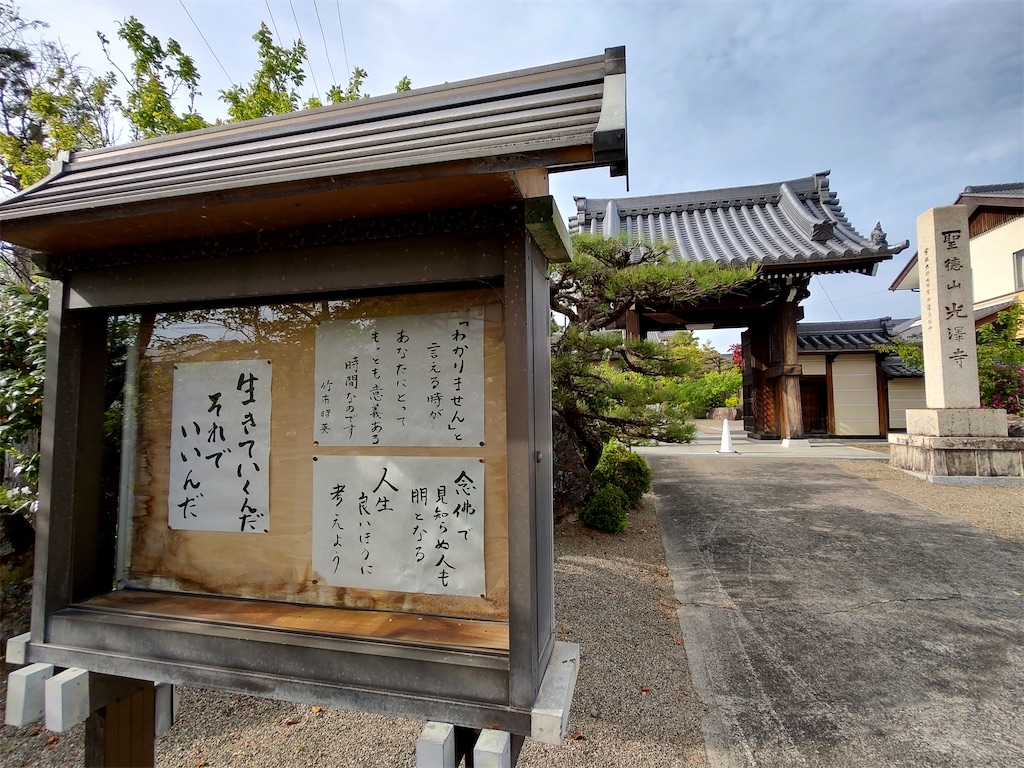 「わかりません」と
言える時が
あなたにとって
もっとも意義ある
時間なのです
竹市昭英
念佛で
見知らぬ人も
朋となる
人生
良いほうに
考えよう
生きていくんだ
それで
いいんだ
聖徳山 光澤寺